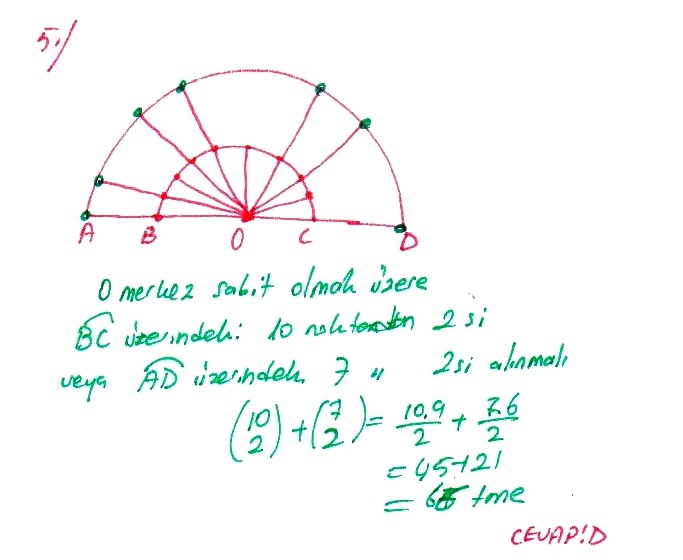 5·/
A B O C D
O merkez sabit olmak üzere
BC üzerindeki 10 noktadan 2 si
veya AD üzerindeki 7 " 2si alınmalı
(10 2) + (7 2) = 10.9/2 + 7.6/2
= 45+21
= 66 tane
CEVAP:D